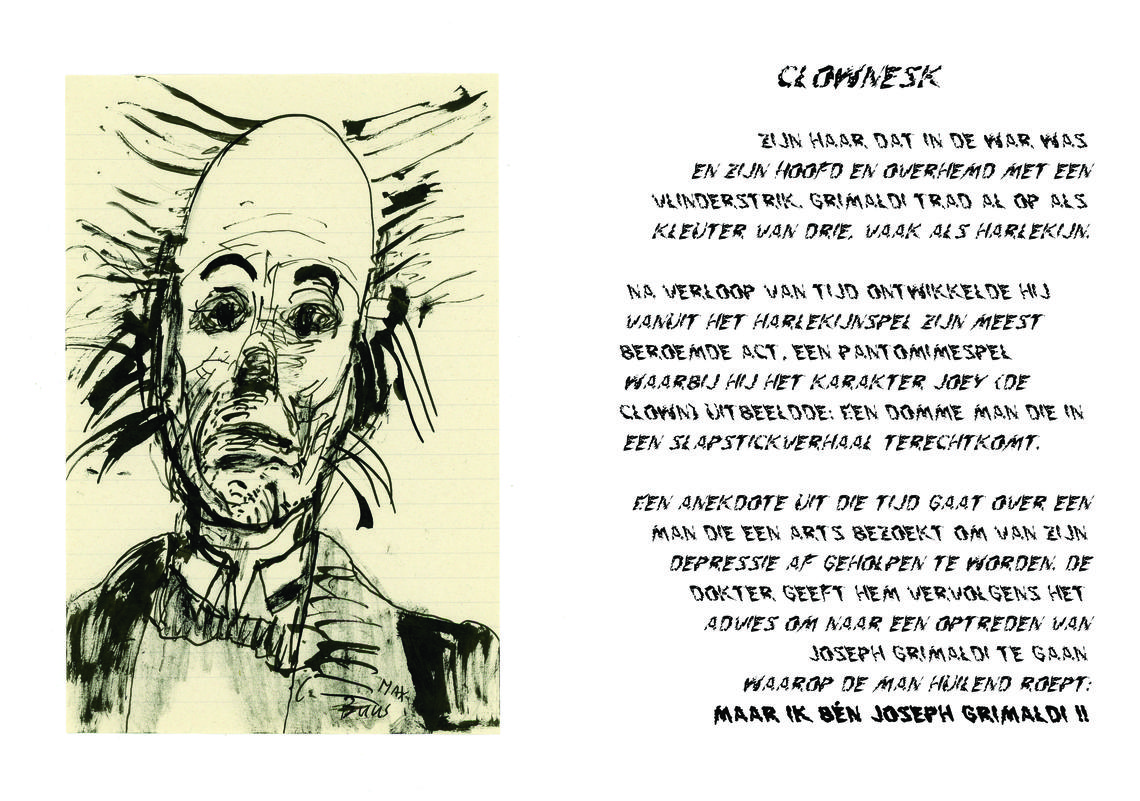 CLOWNESK
ZIJN HAAR DAT IN DE WAR WAS
EN ZIJN HOOFD EN OVERHEMD MET EEN
VLINDERSTRIK. GRIMALDI TRAD AL OP ALS
KLEUTER VAN DRIE, VAAK ALS HARLEKIJN.
NA VERLOOP VAN TIJD ONTWIKKELDE HIJ
VANUIT HET HARLEKIJNSPEL ZIJN MEEST
BEROEMDE ACT, EEN PANTOMIMESPEL
WAARBIJ HIJ HET KARAKTER JOEY (DE
CLOWN) UITBEELDDE: EEN DOMME MAN DIE IN
EEN SLAPSTICKVERHAAL TERECHTKOMT.
EEN ANEKDOTE UIT DIE TIJD GAAT OVER EEN
MAN DIE EEN ARTS BEZOEKT OM VAN ZIJN
DEPRESSIE AF GEHOLPEN TE WORDEN. DE
DOKTER GEEFT HEM VERVOLGENS HET
ADVIES OM NAAR EEN OPTREDEN VAN
JOSEPH GRIMALDI TE GAAN
WAAROP DE MAN HUILEND ROEPT:
MAAR IK BÉN JOSEPH GRIMALDI !!
MAX